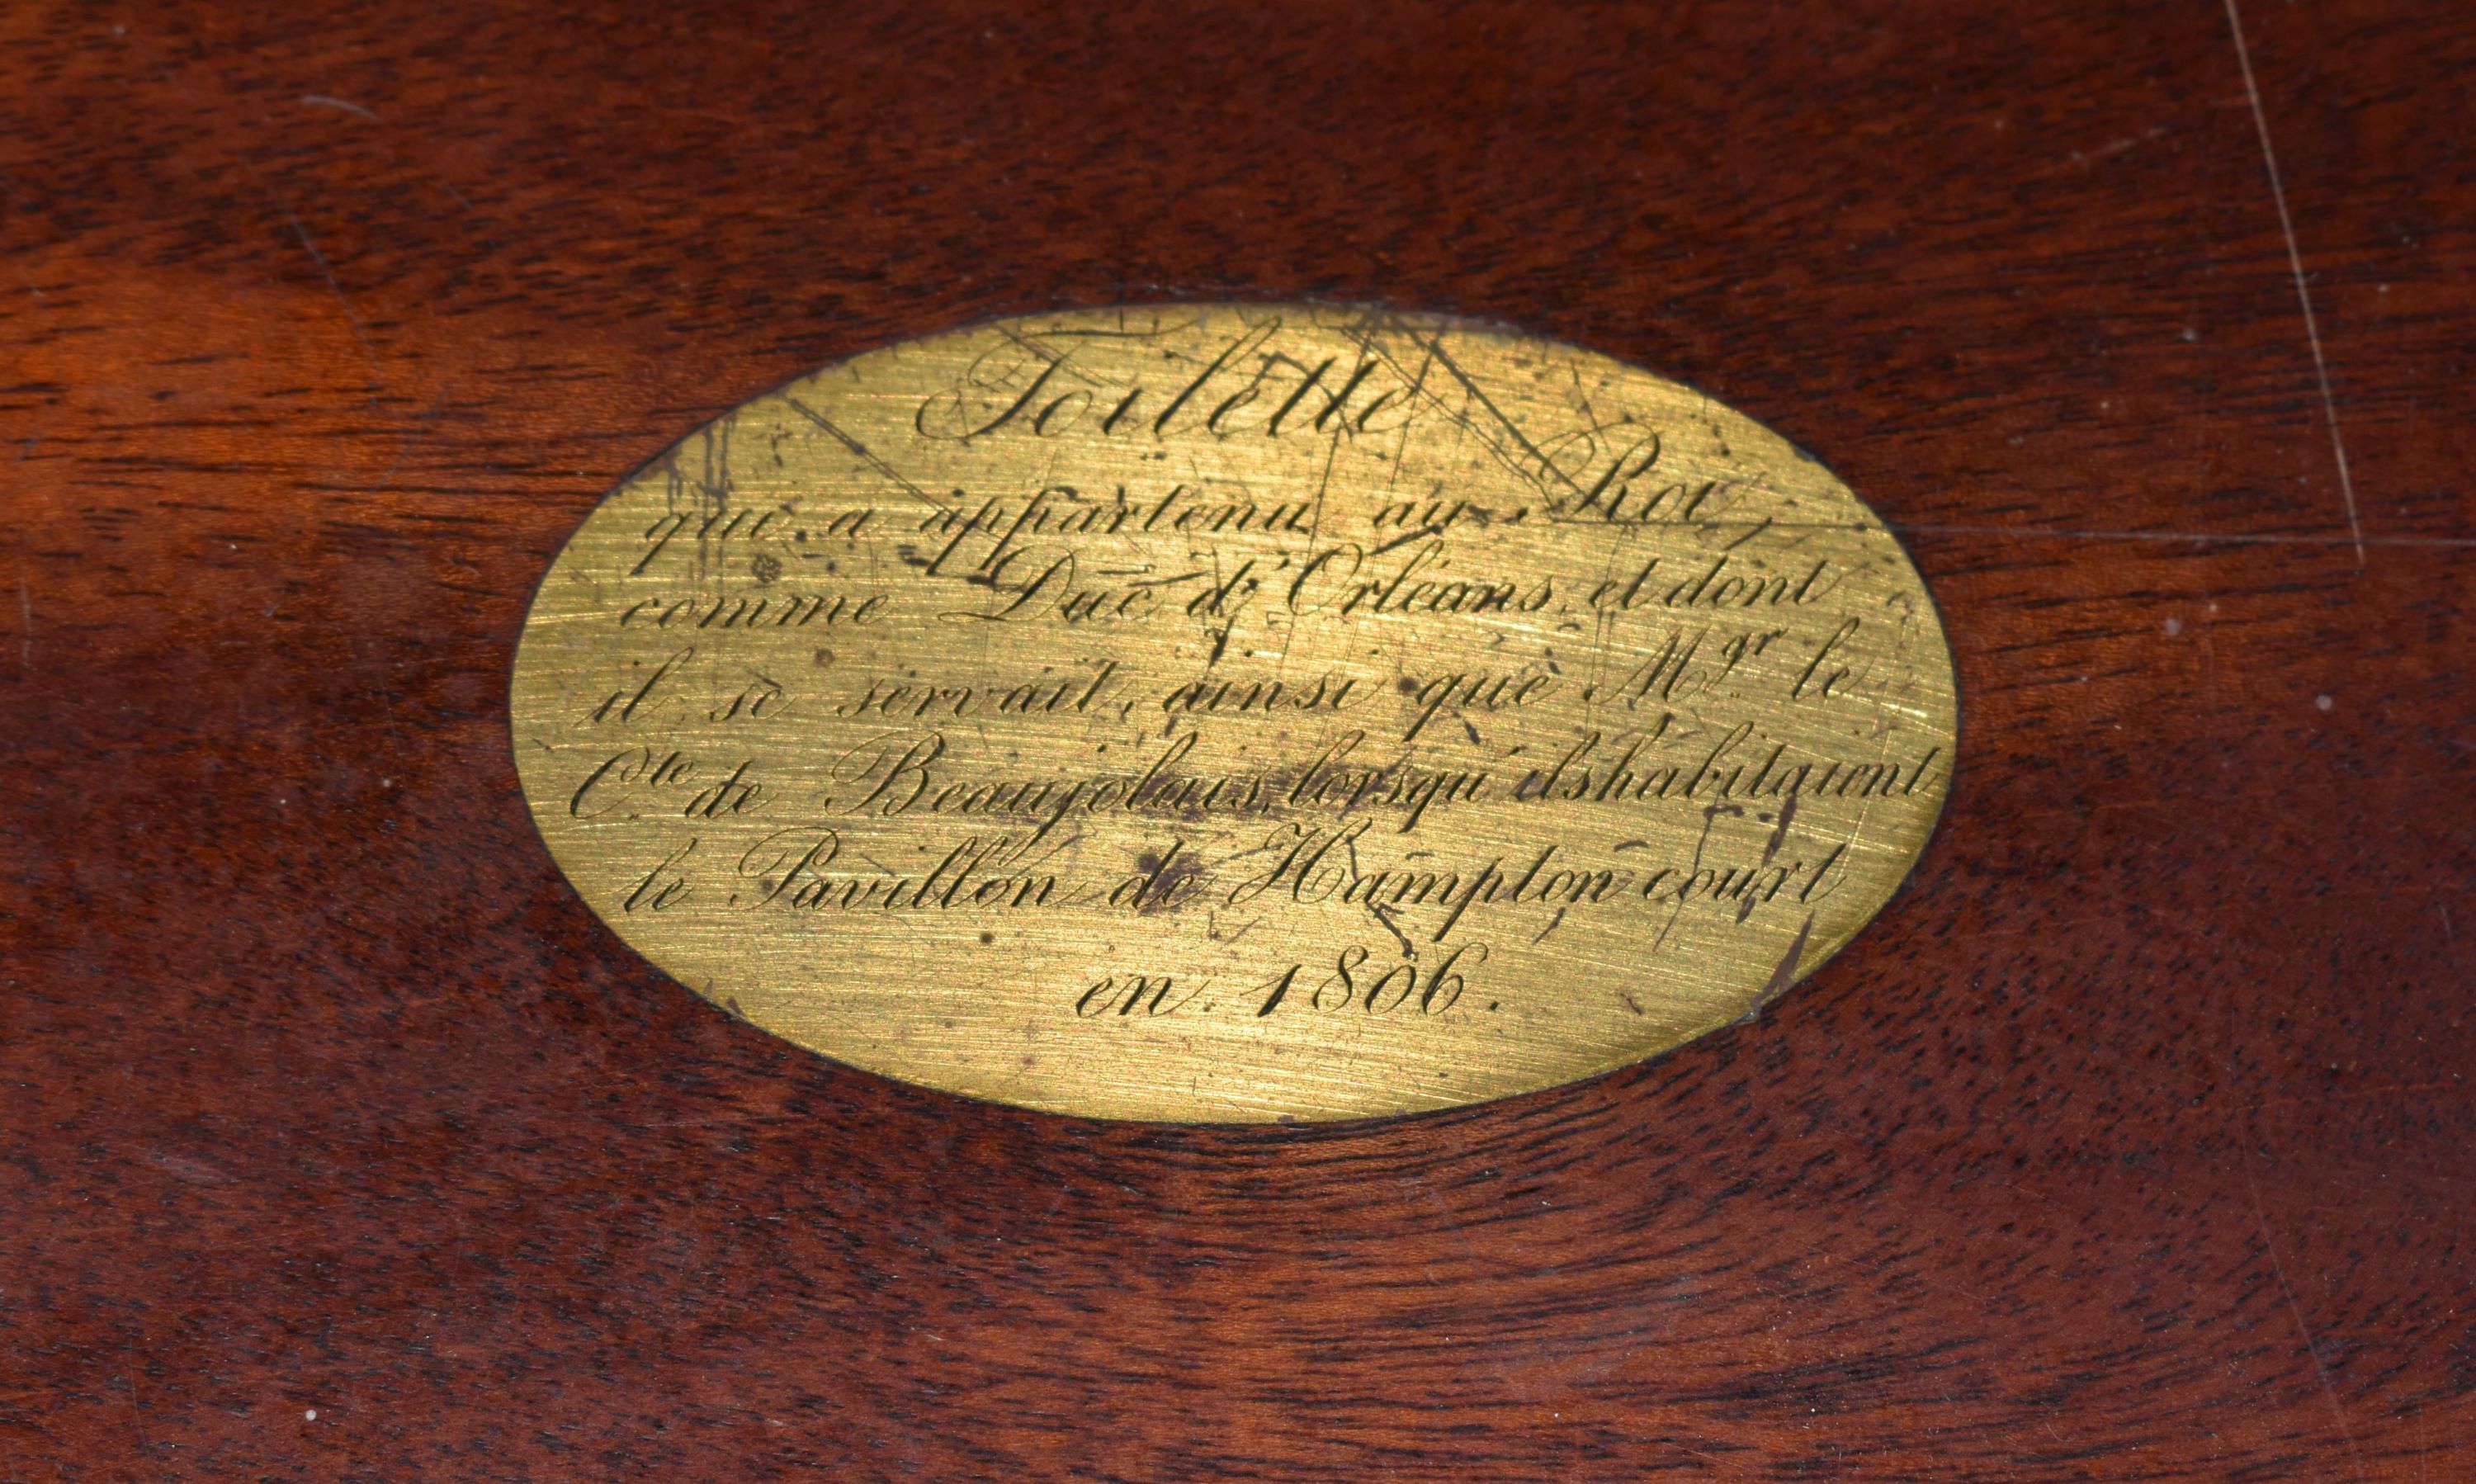 Toilette
que a appartenu au Roi,
comme Duc d'Orléans, et dont
il se servait, ainsi que Mgr le
Cte de Beaujolais, lorsqu'ils habitaient
le Pavillon de Hampton court
en 1806.